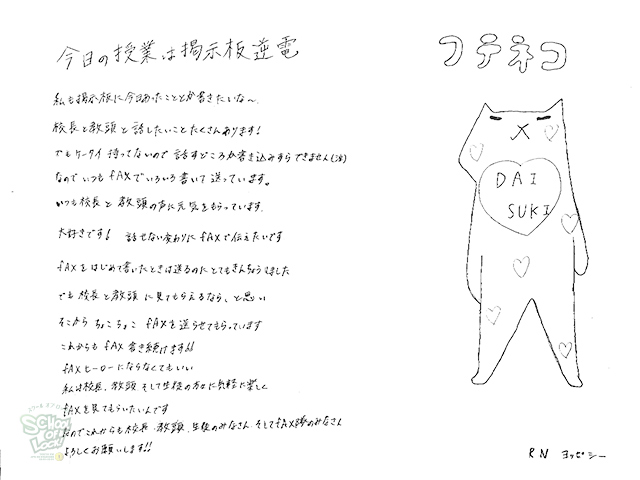 今日の授業は掲示板逆電
私も掲示板に今日あったこととか書きたいな〜.
校長と教頭と話したいことたくさんあります!
でもケータイ持ってないので話すどころか書き込みすらできません(涙)
なのでいつもfAXでいろいろ書いて送っています。
いつも校長と教頭の声に元気をもらっています.
大好きです! 話せない変わりにfAXで伝えたいです
fAXをはじめて書いたときは送るのにとてもきんちょうしました
でも校長と教頭に見てもらえるなら、と思い
そこからちょこちょこfAXを送らせてもらっています
これからもfAX書き続けます!!
fAXヒーローにならなくてもいい
私は校長、教頭そして生徒の方々に気軽に楽しく
fAXを見てもらいたいんです
なのでこれからも校長、教頭、生徒のみなさん、そしてfAX隊のみなさん
よろしくお願いします!!
フテネコ
DAI
SUKI
RN ヨッピシー
SCHOOL
OF
LOCK!